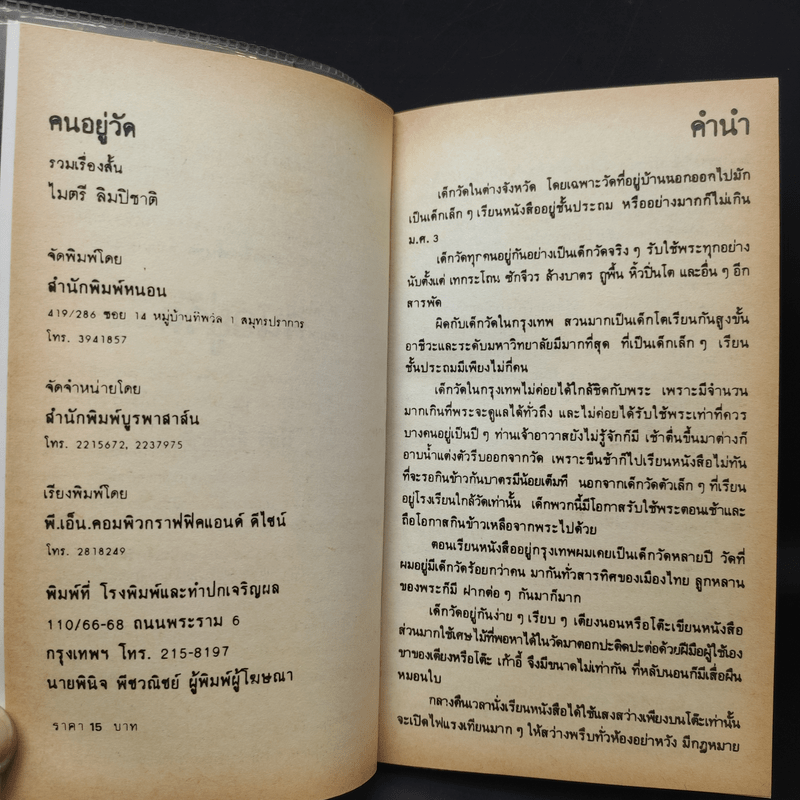 คนอยู่วัด
รวมเรื่องสั้น
ไมตรี ลิมปิชาติ
จัดพิมพ์โดย
สำนักพิมพ์หนอน
419/286 ซอย 14 หมู่บ้านทิพวัล 1 สมุทรปราการ
โทร. 3941857
จัดจำหน่ายโดย
สำนักพิมพ์บูรพาสาส์น
โทร. 2215672, 2237975
เรียงพิมพ์โดย
พี.เอ็น.คอมพิวกราฟฟิคแอนด์ ดีไซน์
โทร. 2818249
พิมพ์ที่ โรงพิมพ์และทำปกเจริญผล
110/66-68 ถนนพระราม 6
กรุงเทพฯ โทร. 215-8197
นายพินิจ พีชวณิชย์ ผู้พิมพ์ผู้โฆษณา
ราคา 15 บาท
คำนำ
เด็กวัดในต่างจังหวัด โดยเฉพาะวัดที่อยู่บ้านนอกออกไปมัก
เป็นเด็กเล็ก ๆ เรียนหนังสืออยู่ชั้นประถม หรืออย่างมากก็ไม่เกิน
ม.ศ. 3
เด็กวัดทุกคนอยู่กันอย่างเป็นเด็กวัดจริง ๆ รับใช้พระทุกอย่าง
นับตั้งแต่ เทกระโถน ซักจีวร ล้างบาตร ถูพื้น หิ้วปิ่นโต และอื่น ๆ อีก
สารพัด
ผิดกับเด็กวัดในกรุงเทพ สวนมากเป็นเด็กโตเรียนกันสูงขั้น
อาชีวะและระดับมหาวิทยาลัยมีมากที่สุด ที่เป็นเด็กเล็ก ๆ เรียน
ชั้นประถมมีเพียงไม่กี่คน
เด็กวัดในกรุงเทพไม่ค่อยได้ใกล้ชิดกับพระ เพราะมีจำนวน
มากเกินที่พระจะดูแลได้ทั่วถึง และไม่ค่อยได้รับใช้พระเท่าที่ควร
บางคนอยู่เป็นปี ๆ ท่านเจ้าอาวาสยังไม่รู้จักก็มี เช้าตื่นขึ้นมาต่างก็
อาบน้ำแต่งตัวรีบออกจากวัด เพราะขืนช้าก็ไปเรียนหนังสือไม่ทัน
ที่จะรอกินข้าวก้นบาตรมีน้อยเต็มที นอกจากเด็กวัดตัวเล็ก ๆ ที่เรียน
อยู่โรงเรียนใกล้วัดเท่านั้น เด็กพวกนี้มีโอกาสรับใช้พระตอนเช้าและ
ถือโอกาสกินข้าวเหลือจากพระไปด้วย
ตอนเรียนหนังสืออยู่กรุงเทพผมเคยเป็นเด็กวัดหลายปี วัดที่
ผมอยู่มีเด็กวัดร้อยกว่าคน มากันทั่วสารทิศของเมืองไทย ลูกหลาน
ของพระก็มี ฝากต่อ ๆ กันมาก็มาก
เด็กวัดอยู่กันง่าย ๆ เรียบ ๆ เตียงนอนหรือโต๊ะเขียนหนังสือ
ส่วนมากใช้เศษไม้ที่พอหาได้ในวัดมาตอกปะติดปะต่อด้วยฝีมือผู้ใช้เอง
ขาของเตียงหรือโต๊ะ เก้าอี้ จึงมีขนาดไม่เท่ากัน ที่หลับนอนก็มีเสื่อผืน
หมอนใบ
กลางคืนเวลานั่งเรียนหนังสือได้ใช้แสงสว่างเพียงบนโต๊ะเท่านั้น
จะเปิดไฟแรงเทียนมาก ๆ ให้สว่างพรึบทั่วห้องอย่าหวัง มีกฎหมาย